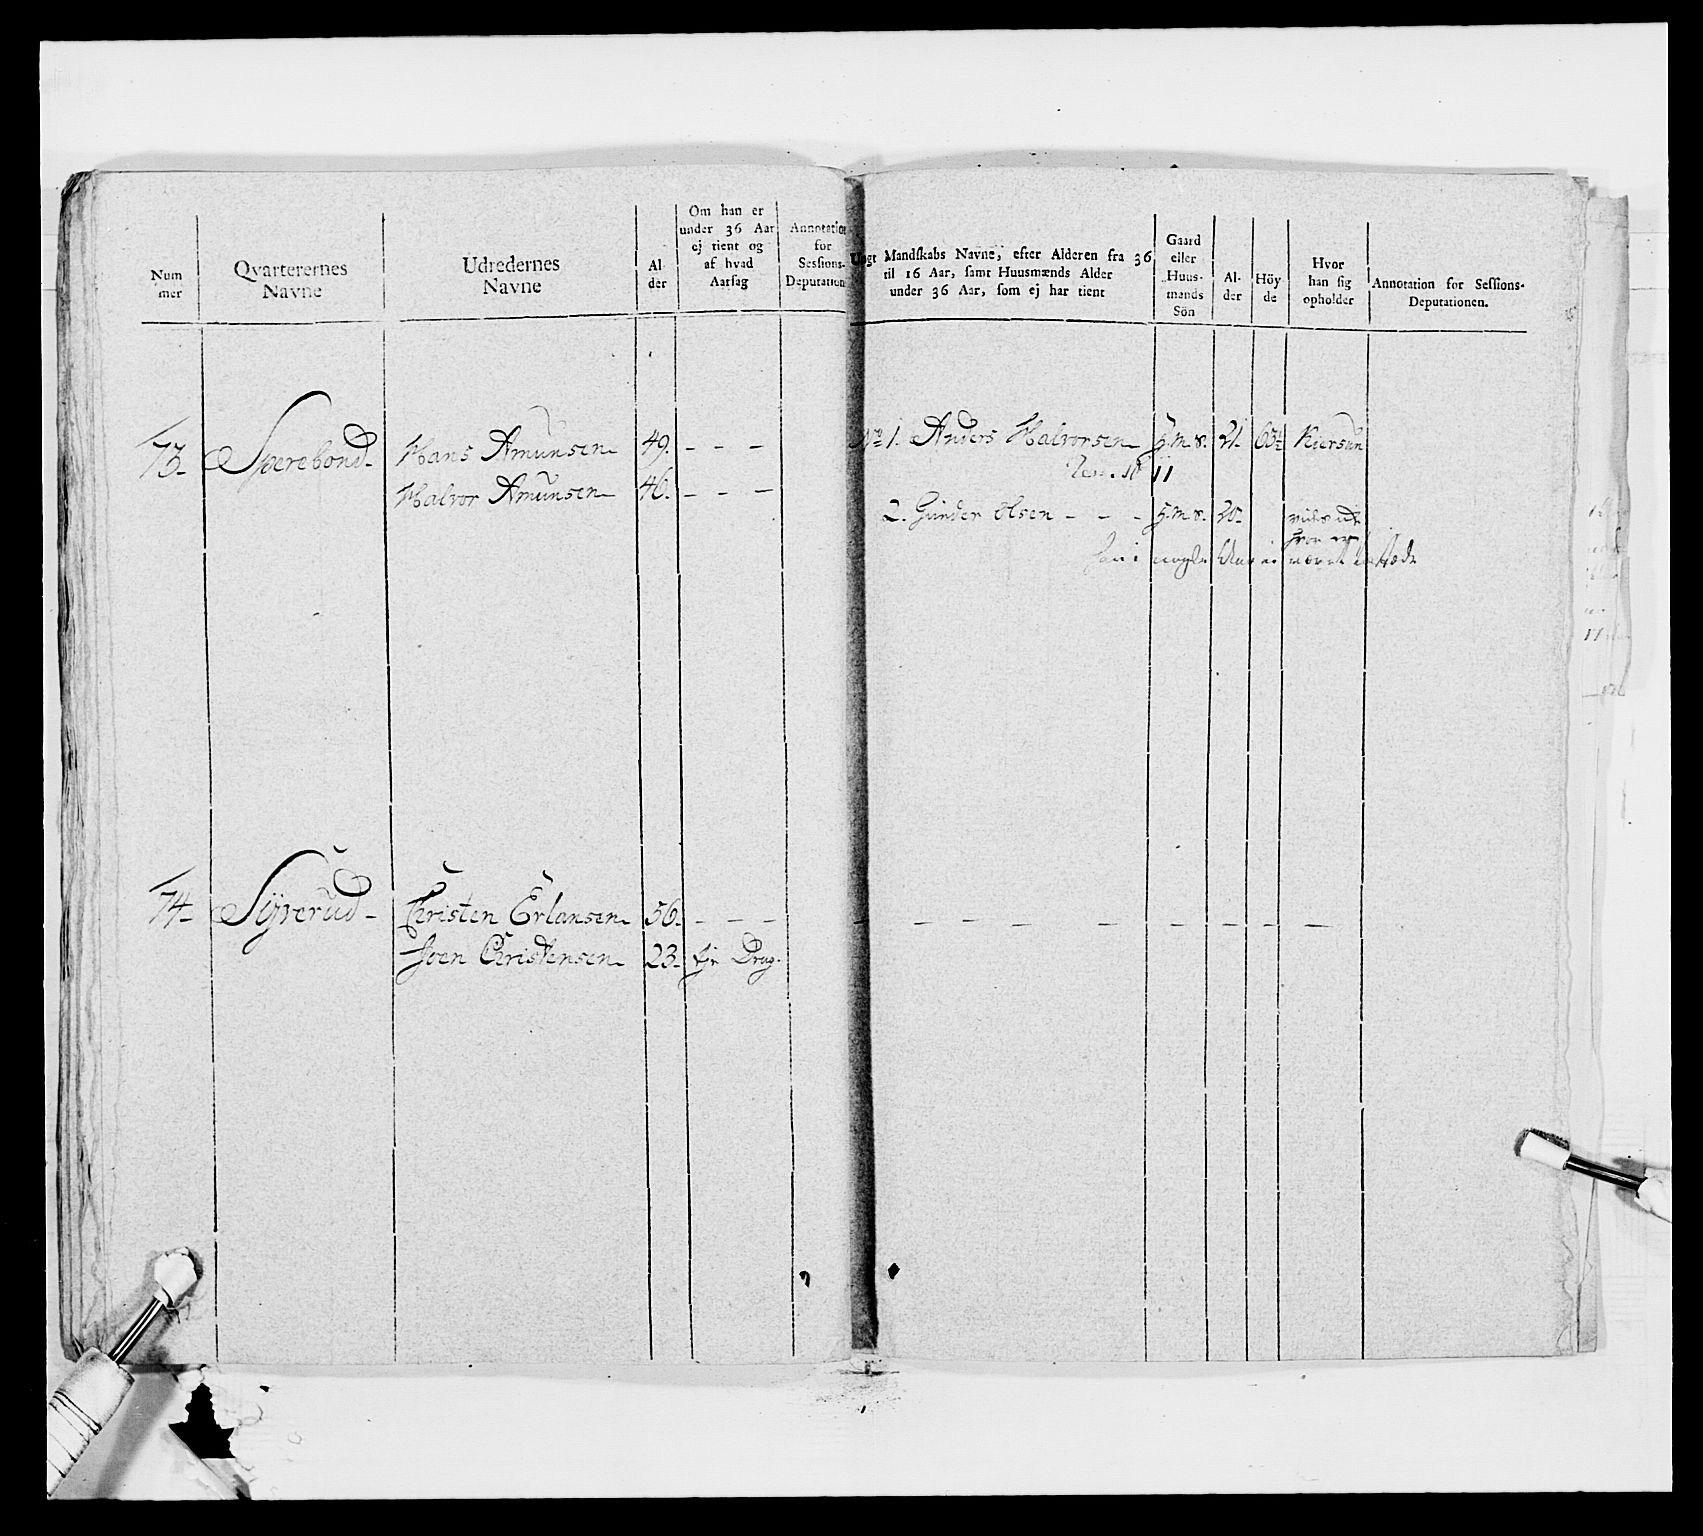 Num
mer
Qvarterernes
Navne
Udredernes
Navne
Al-
der
Om han er
under 36 Aar
ej tient og
af hvad
Aarsag
Annotation
for
Sessions-
Deputation
Ungt Mandskabs Navne, efter Alderen fra 36
til 16 Aar, samt Huusmænds Alder
under 36 Aar, som ej har tient
Gaard
eller
Huus-
mands
Sön
Al-
der
Höy
de
Hvor
han sig
opholder
Annotation for Sessions-
Deputationen.
73. Sperebond. Hans Amunsen 49. - - - No 1. Anders Halvorsen 21. Kiersun
Halvor Amunsen 46. - - -
11
2. Gunder Olsen - - - 20.
nogle Aar
74. Syverud Christen Erlansen 56. - - -
Joen Christensen 23. Drag.